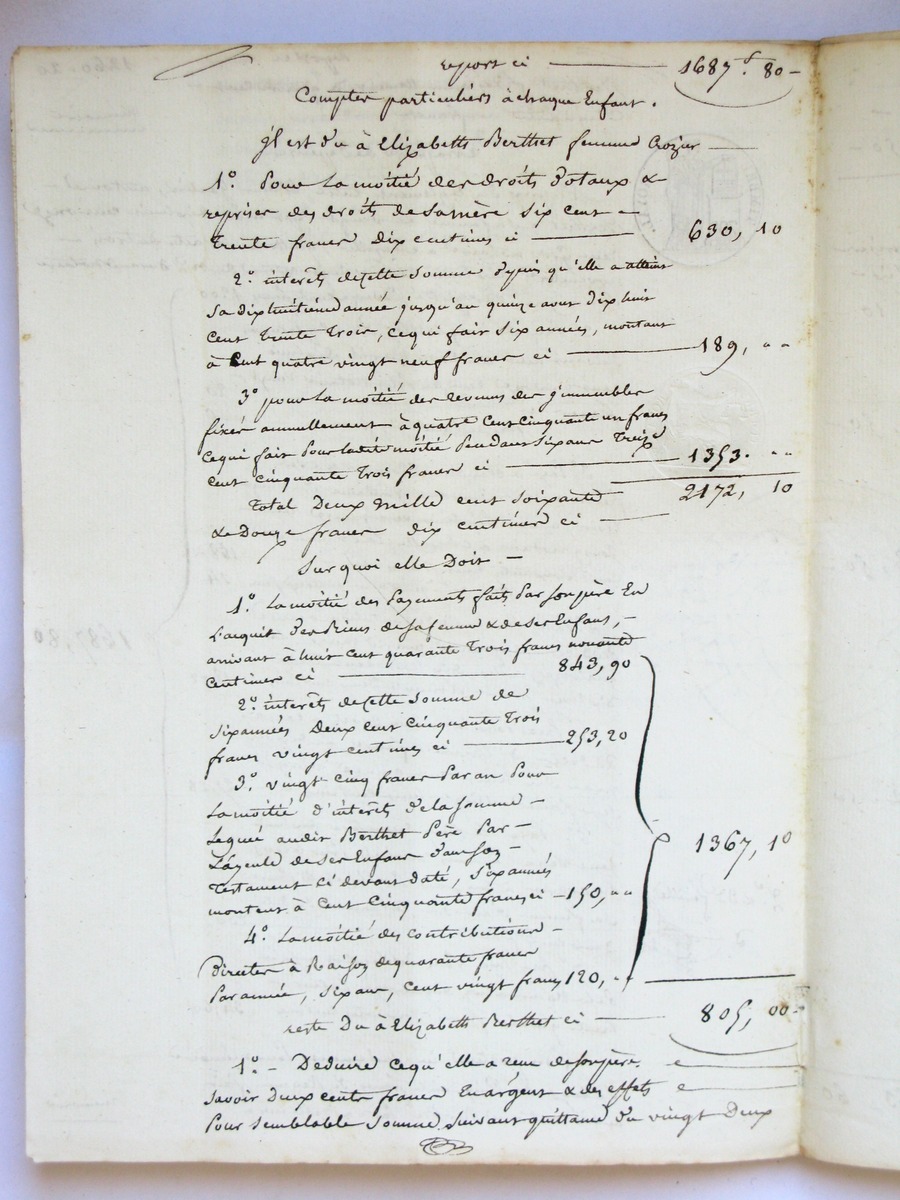 report ci 1687f. 80
Comptes particuliers à chaque Enfant.
Il est du à Elizabeth Berthet femme Crozier
1°. Pour la moitié des droits Dotaux &
reprises des droits de sa mère six cent
trente francs dix centimes ci 630, 10
2°. intérêts de cette somme depuis qu'elle a atteint
sa dixhuitième année jusqu'au quinze aout dix huit
cent trente trois, ce qui fait six années, montant
à cent quatre vingt neuf francs ci 189, " "
3° pour la moitié des revenus des immeubles
fixés annuellement à quatre cent cinquante un francs
ce qui fait pour ladite moitié pendant six ans treize
cent cinquante trois francs ci 1353. " "
Total Deux mille cent soixante 2172, 10
& Douze francs dix centimes ci
Sur quoi elle Doit
1°. La moitié des payements faits par son père en
l'acquit des biens de sa femme & de ses Enfants,
arrivant à huit cent quarante trois francs nonante
centimes ci 843, 90
2°. intérêts de cette somme de
six années Deux cent cinquante trois
francs vingt centimes ci 253, 20
3°. vingt cinq francs par an pour
la moitié d'intérêts de la somme
leguée audit Berthet père par
l'ayeule de ses Enfants dans son 1367, 10
Testament ci devant daté, six années
montent à cent cinquante francs ci 150, " "
4°. La moitié des contributions
Directes à Raison de quarante francs
par année, six ans, cent vingt francs 120, " "
reste du à Elizabeth Berthet ci 805, 00
1°. - Deduire ce qu'elle a reçu de son père
savoir deux cents francs en argent & des effets
pour semblable somme suivant quittance du vingt deux